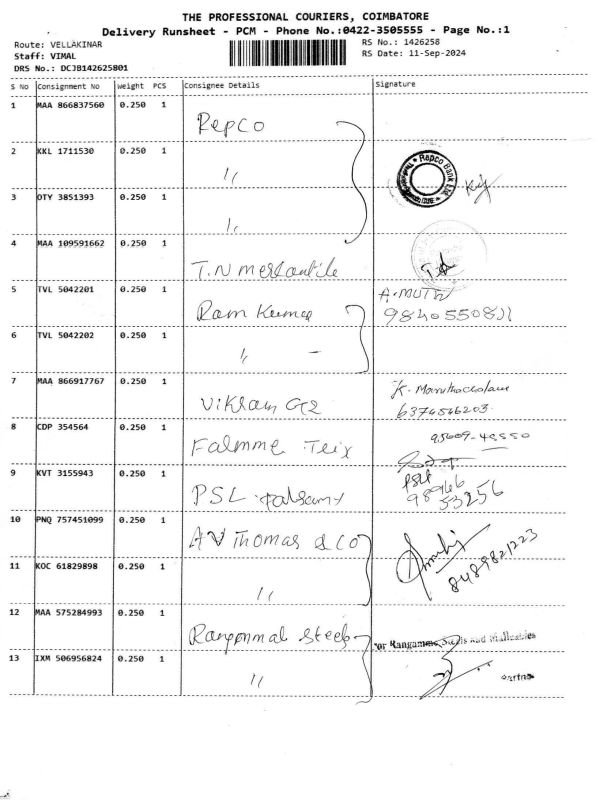 THE PROFESSIONAL COURIERS, COIMBATORE
Delivery Runsheet - PCM - Phone No.:0422-3505555 - Page No.:1
Route: VELLAKINAR
RS No.: 1426258
Staff: VIMAL
RS Date: 11-Sep-2024
DRS No.: DCJB142625801
S No Consignment No Weight PCS Consignee Details Signature
1 MAA 866837560 0.250 1 Repco
2 KKL 1711530 0.250 1 〃
Repco Bank Ltd.
3 OTY 3851393 0.250 1 〃
4 MAA 109591662 0.250 1 T.N mercantile
5 TVL 5042201 0.250 1 Ram Kumar
A. MUTHU
9840550811
6 TVL 5042202 0.250 1 〃 -
7 MAA 866917767 0.250 1 Vikram
K.
6374546203
8 CDP 354564 0.250 1
9 KVT 3155943 0.250 1 PSL
PSL
98966
53256
10 PNQ 757451099 0.250 1 A V Thomas & Co
11 KOC 61829898 0.250 1 〃
8489821223
12 MAA 575284993 0.250 1 Steels
or Rangammal Steels and Malleables
13 IXM 506956824 0.250 1 〃
Partner